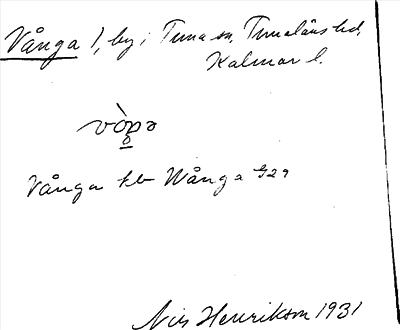 Vånga 1, by i Tuna sn, Tunaläns hd,
Kalmar l.
Vånga kb Wånga
Nils Henrikson 1931